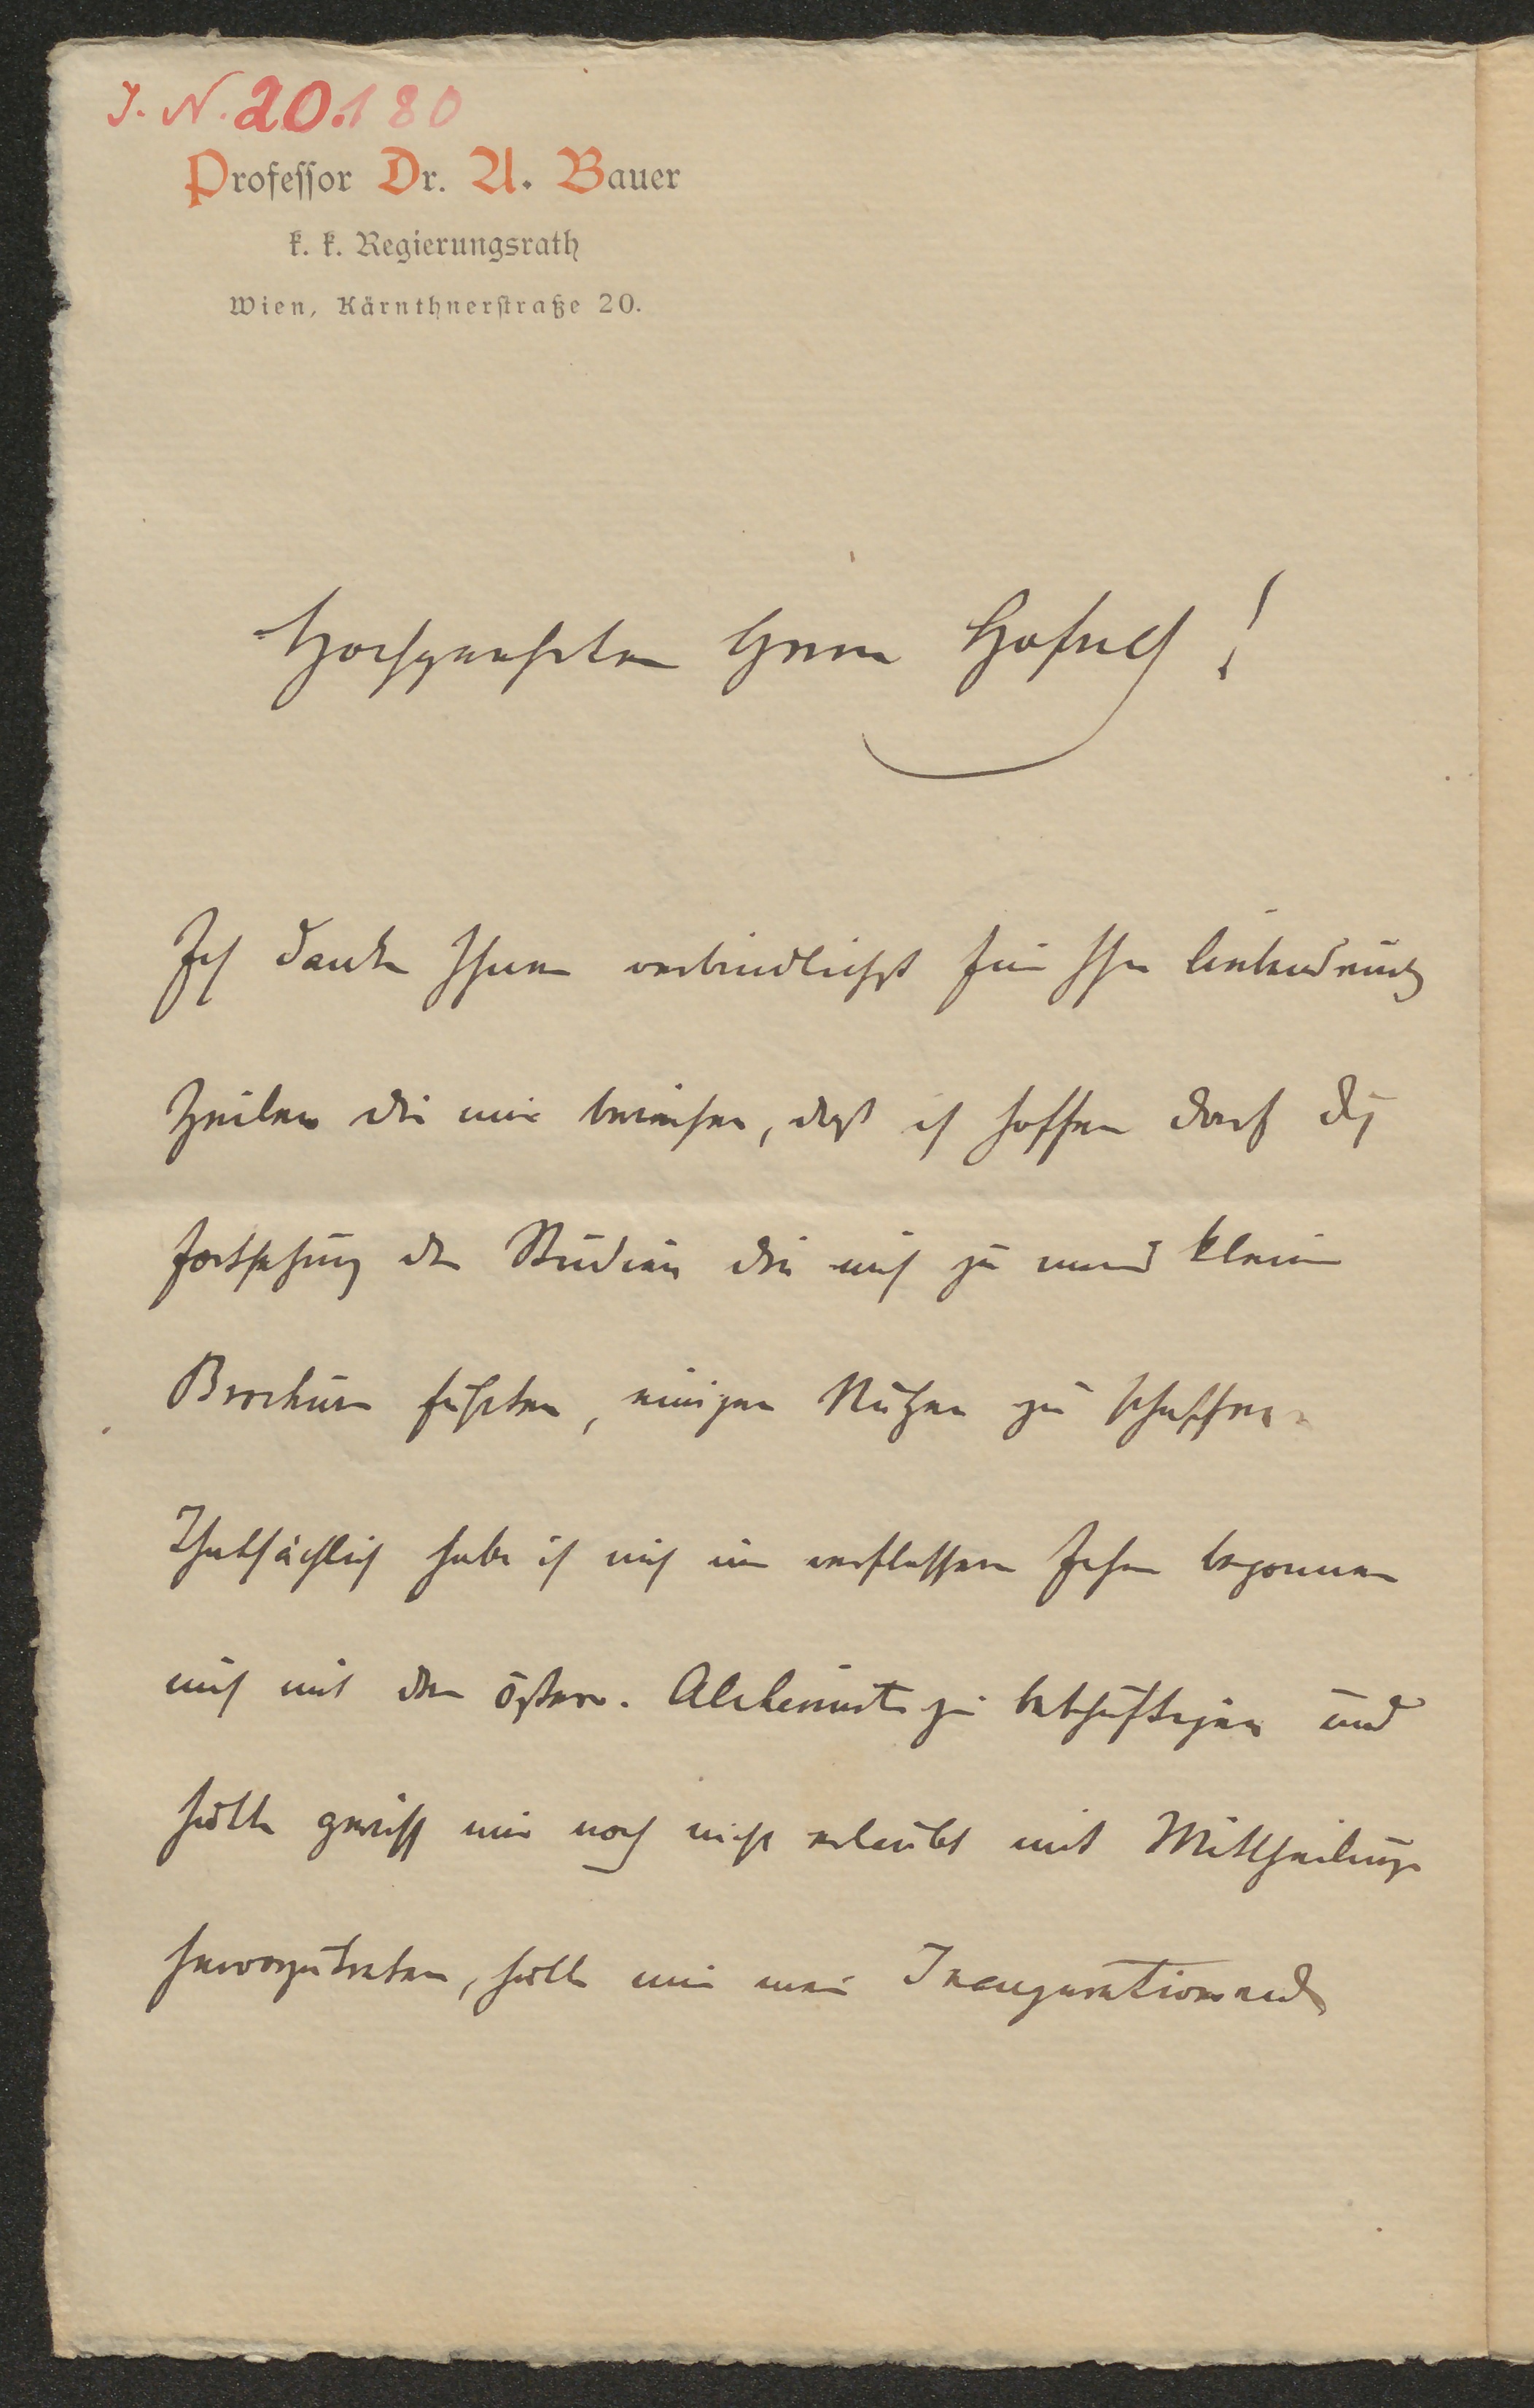 J. N. 20.180
Professor Dr. A. Bauer
k. k. Regierungsrath
Wien, Kärnthnerstraße 20.
Hochgeehrter Herr Hofrath!
Ich danke Ihnen verbindlichst für Ihre
Zeilen die mir beweisen, daß ich hoffen darf die
Fortsetzung der Studien die mich zu meiner kleinen
Brochüre führten, einigen Nutzen zu schaffen.
Thatsächlich habe ich mich im verflossenen Jahre begonnen
mich mit den österr. Alchemisten zu beschäftigen und
hätte gewiss mir noch nicht erlaubt mit Mittheilungen
hervorzutreten, hätte mir meine Inaugurationsrede